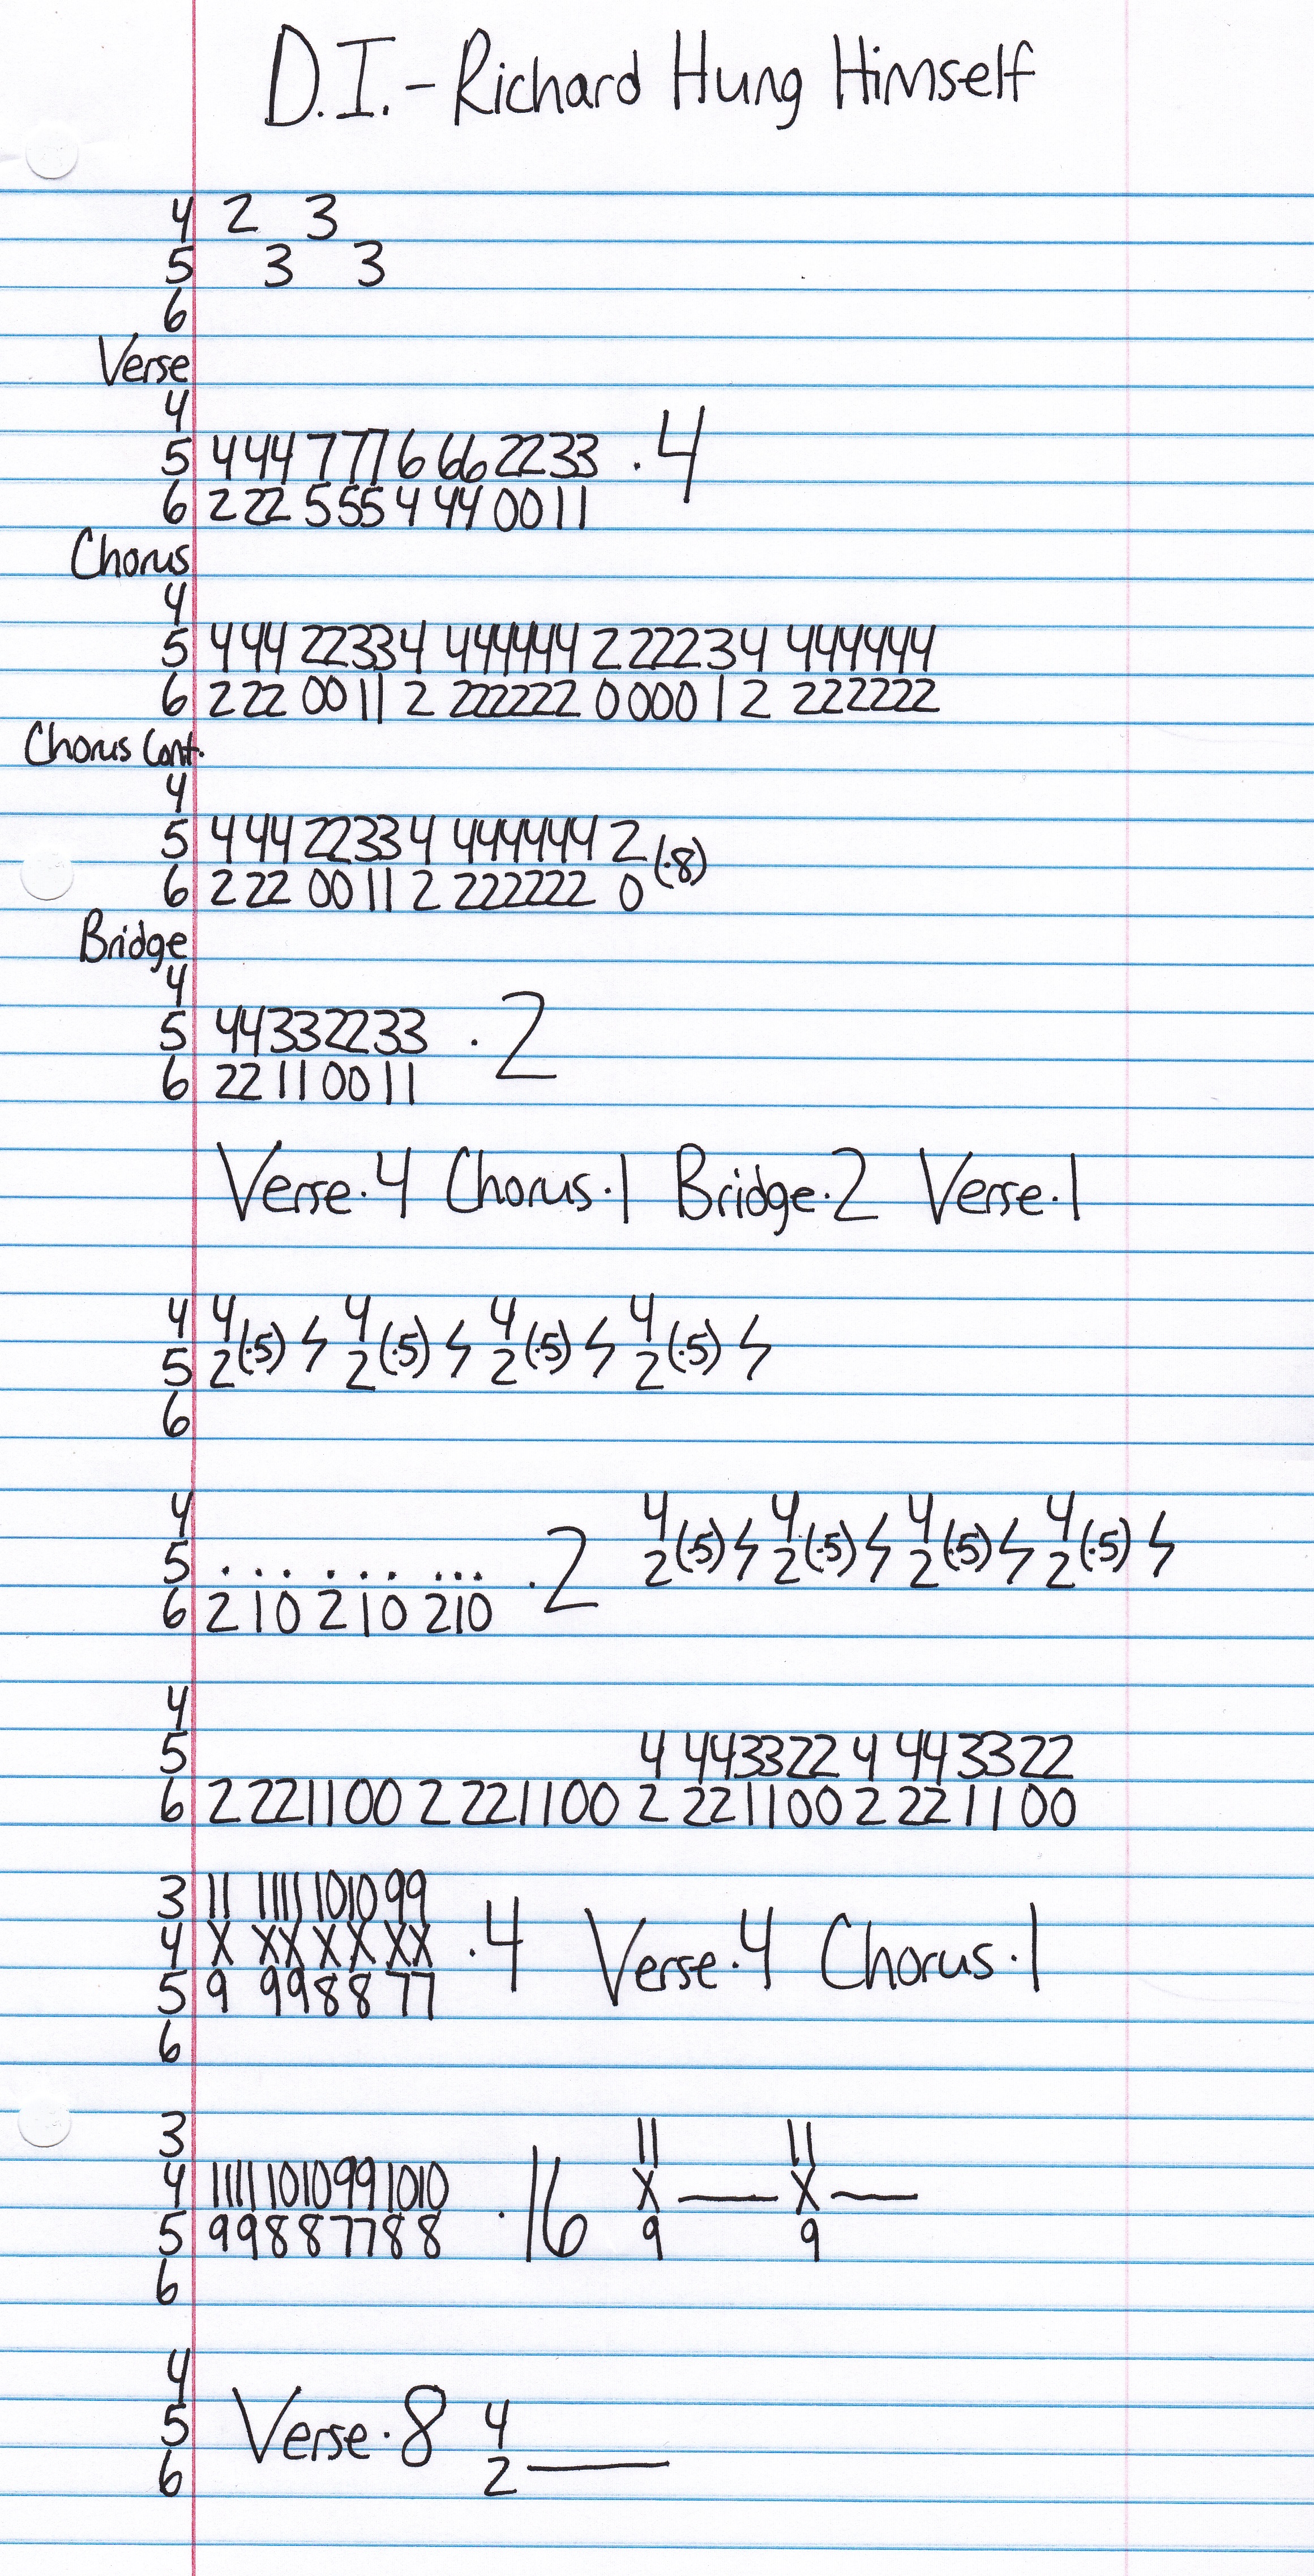 D.I. - Richard Hung Himself
4 2 3
5 3 3
6
Verse
4
5 4 44 7 77 6 66 2233 .4
6 2 22 5 55 4 44 0011
Chorus
4
5 4 44 22334 444444 2 22234 444444
6 2 22 0011 2 222222 0 000 1 2 222222
Chorus Cont.
4
5 4 44 22334 444444 2 (.8)
6 2 22 0011 2 222222 0
Bridge
4
5 44332233 .2
6 22110011
Verse.4 Chorus.1 Bridge.2 Verse.1
4 4 (.5) 4 (.5) 4 (.5) 4 (.5)
5 2 2 2 2
6
4 4 (.5) 4 (.5) 4 (.5) 4 (.5)
5 . . . . . . . . . .2 2 2 2 2
6 2 1 0 2 1 0 2 1 0
4
5 4 443322 4 443322
6 2 221100 2 221100 2 221100 2 221100
3 11 1111 1010 99
4 X XX X X XX .4 Verse.4 Chorus.1
5 9 998877
6
3 11 11
4 1111 1010 99 1010 .16 X — X —
5 99887788 9 9
6
4
5 Verse.8 4
6 2 —